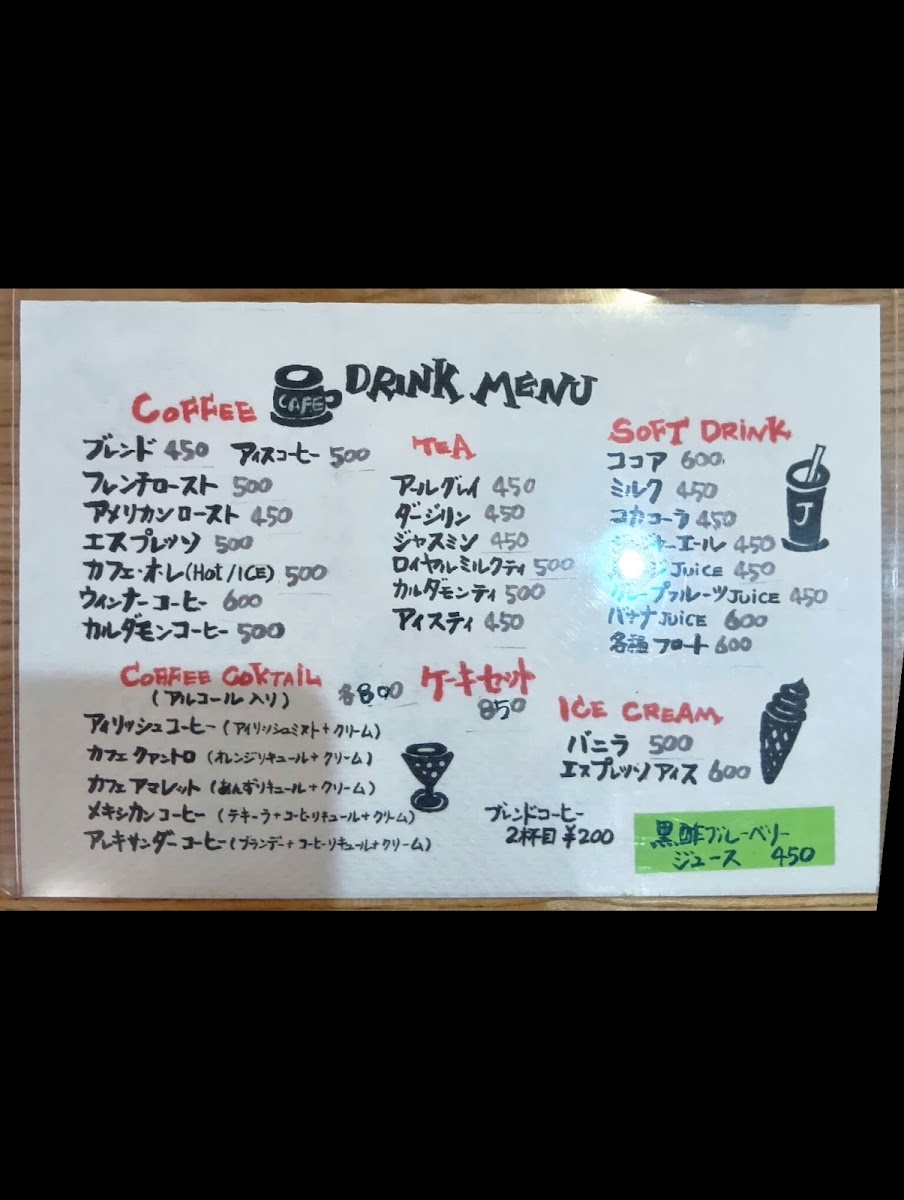 DRINK MENU
CAFE
COFFEE
ブレンド 450 アイスコーヒー 500
フレンチロースト 500
アメリカンロースト 450
エスプレッソ 500
カフェ・オ・レ(Hot/ICE) 500
ウィンナーコーヒー 600
カルダモンコーヒー 500
TEA
アールグレイ 450
ダージリン 450
ジャスミン 450
ロイヤルミルクティ 500
カルダモンティ 500
アイスティ 450
SOFT DRINK
ココア 600
ミルク 450
コカコーラ 450
ーエール 450
JUICE 450
グレープフルーツJUICE 450
バナナJUICE 600
各種フロート 600
J
COFFEE COKTAIL
(アルコール入り) 各800
アイリッシュコーヒー(アイリッシュミスト+クリーム)
カフェクァントロ(オレンジリキュール+クリーム)
カフェアマレット(あんずリキュール+クリーム)
メキシカンコーヒー(テキーラ+コーヒーリキュール+クリーム)
アレキサンダーコーヒー(ブランデー+コーヒーリキュール+クリーム)
ケーキセット
850
ICE CREAM
バニラ 500
エスプレッソアイス 600
ブレンドコーヒー
2杯目 ¥200
黒酢ブルーベリー
ジュース 450